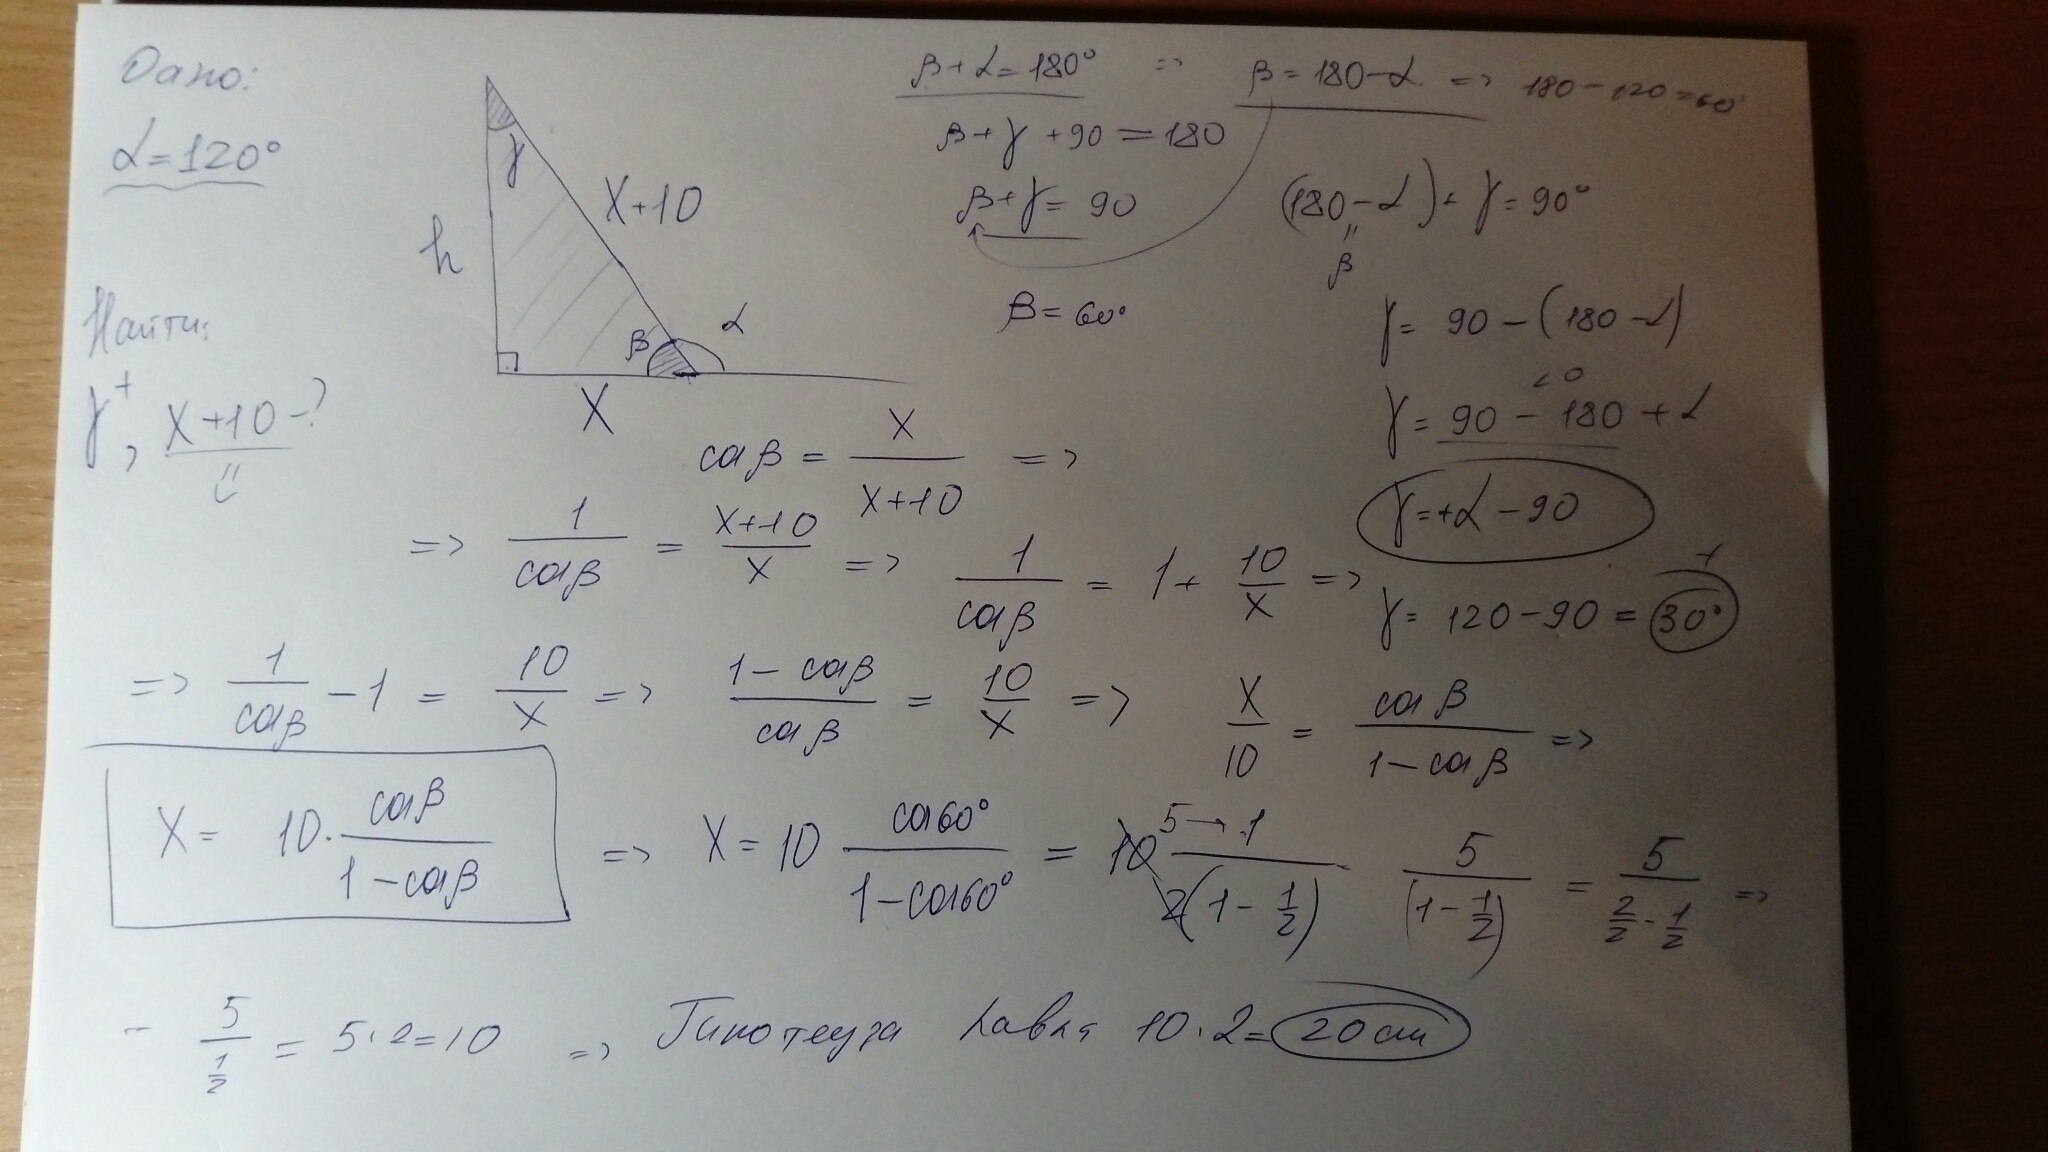 Дано:
α=120°
Найти:
γ, x+10-?
γ
h
X+10
β
α
X
β+α=180° => β=180-α => 180-120=60°
β+γ+90=180
β+γ=90
(180-α)+γ=90°
"
β
β=60°
γ=90-(180-α)
<0
γ=90-180+α
γ=+α-90
γ=120-90=30°
cosβ = x/(x+10) =>
=> 1/cosβ = (x+10)/x => 1/cosβ = 1+10/x =>
=> 1/cosβ - 1 = 10/x => (1-cosβ)/cosβ = 10/x => x/10 = cosβ/(1-cosβ) =>
X = 10·cosβ/(1-cosβ) => X=10 cos60°/(1-cos60°) = 10 5→1/2(1-1/2) 5/(1-1/2) = 5/(2/2-1/2) =>
= 5/(1/2) = 5·2=10 => Гипотеуза 10·2=20см